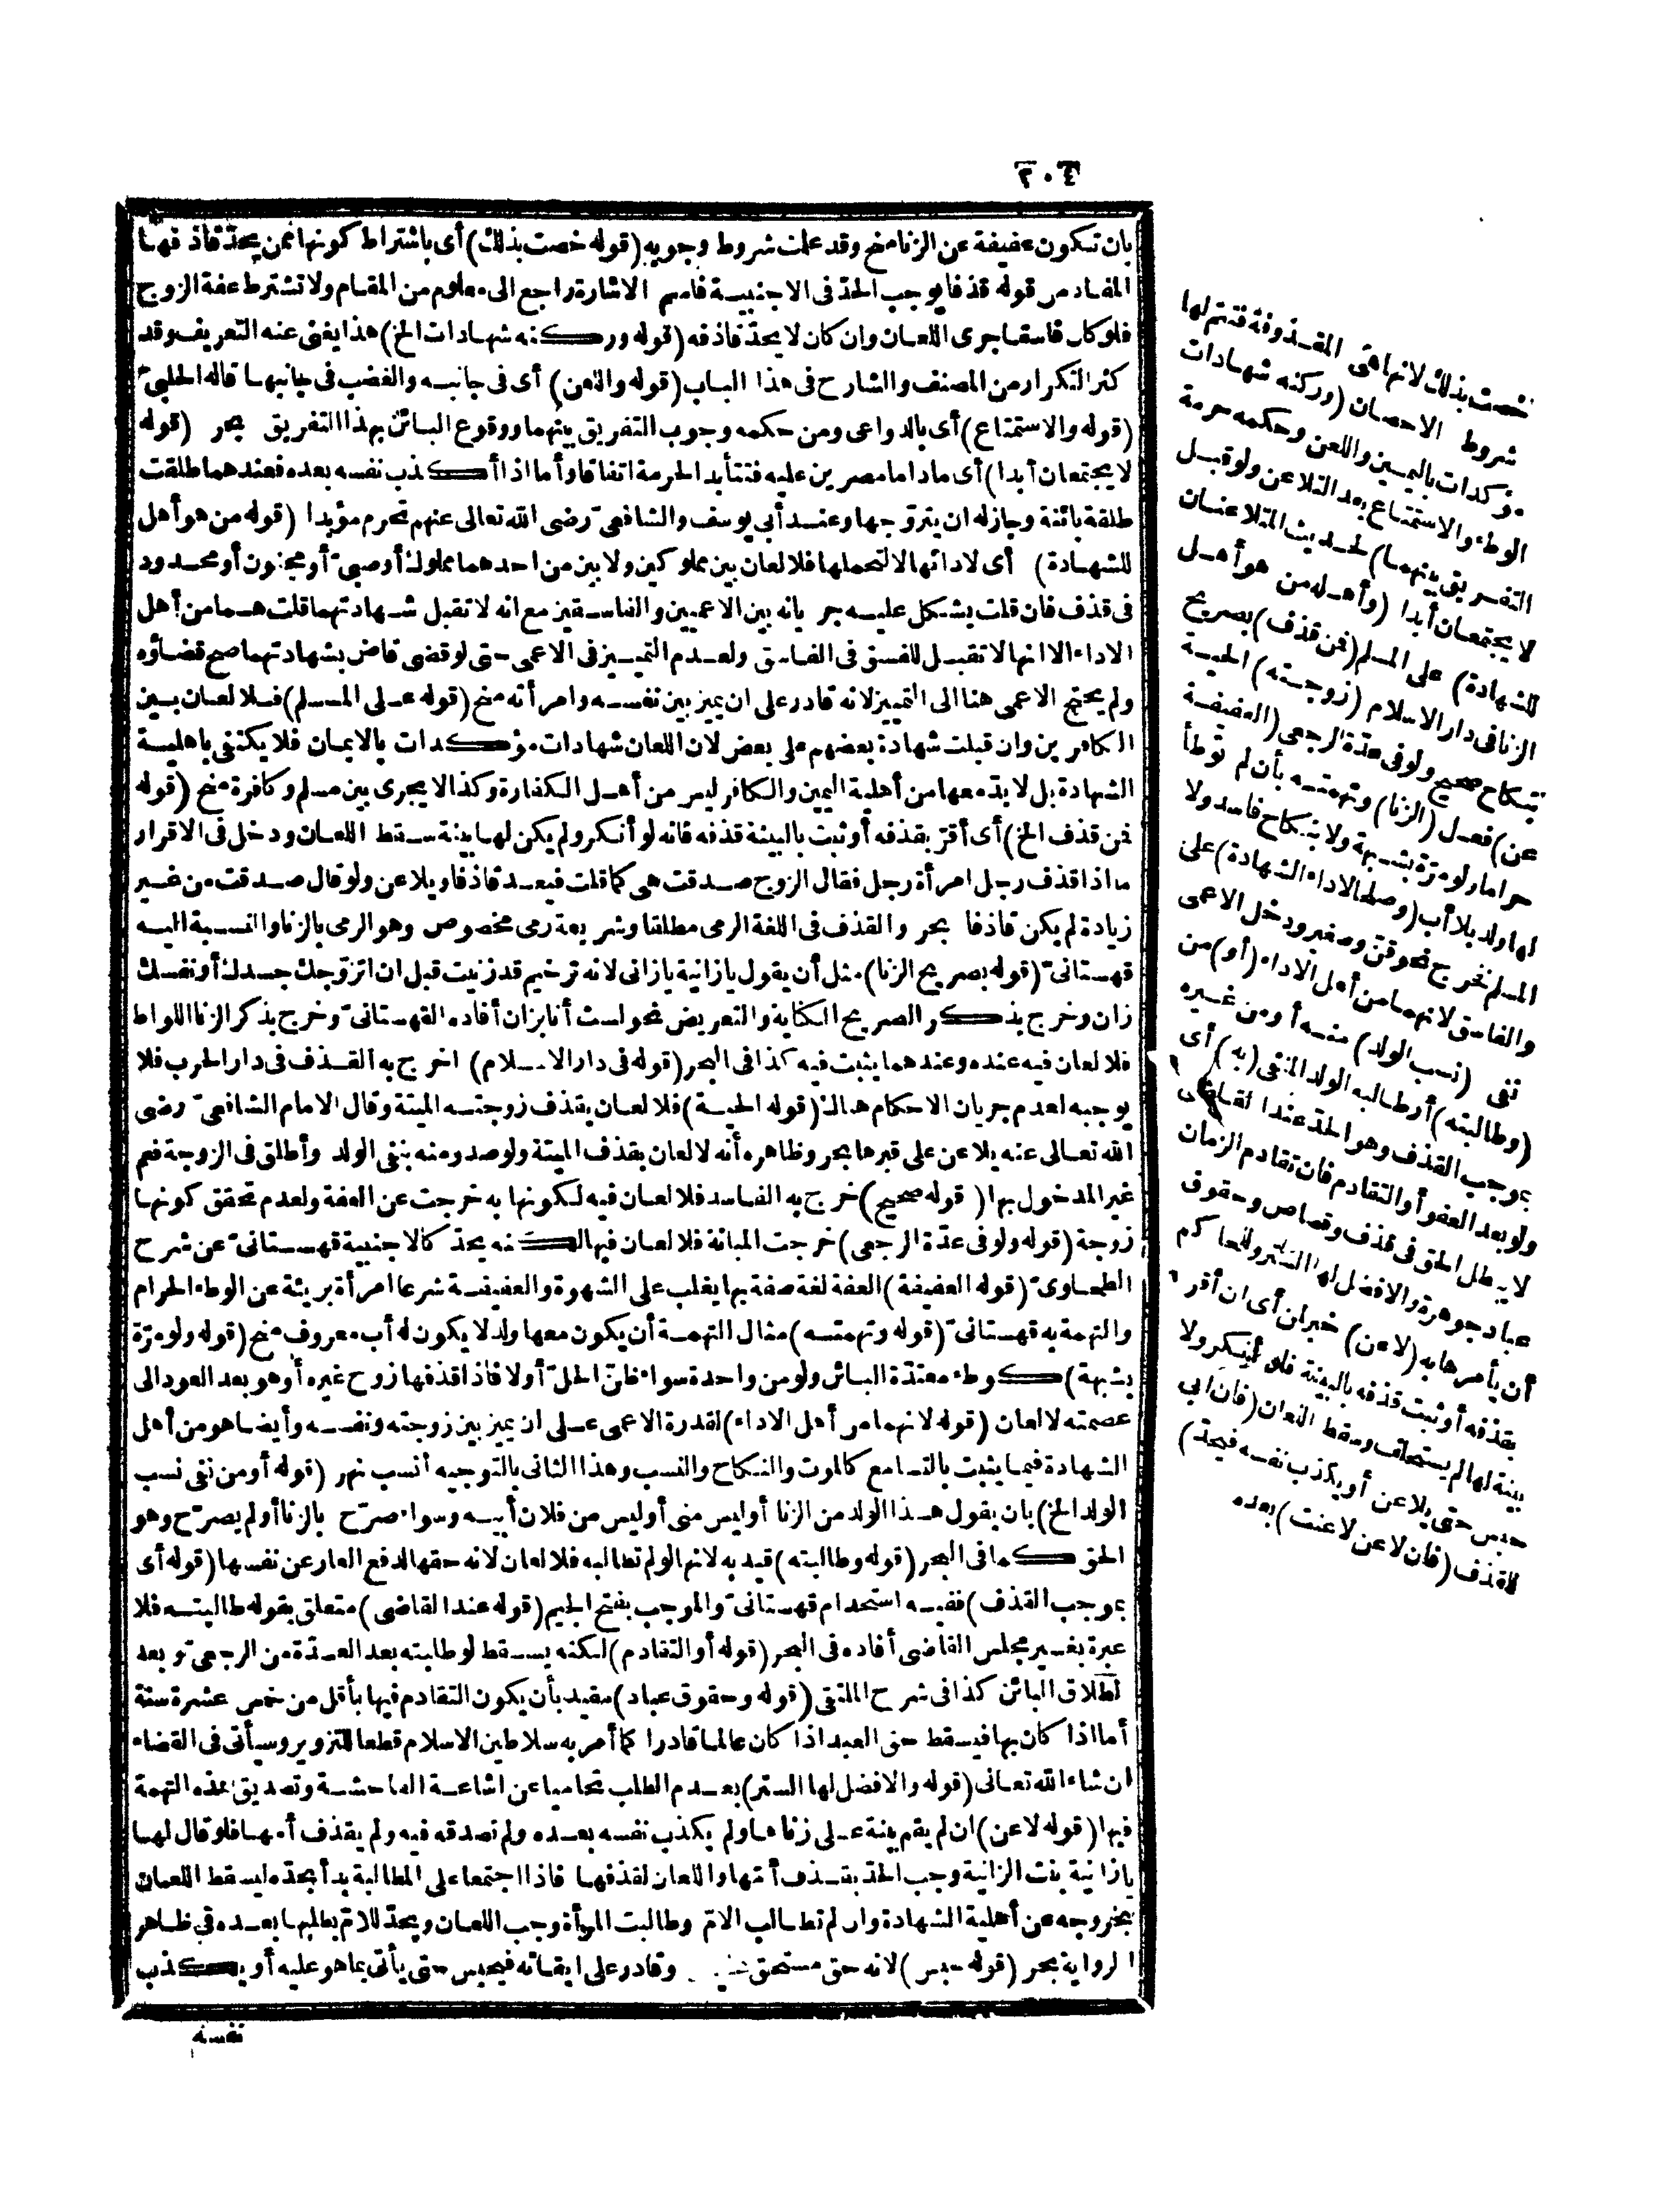 ٢٠٤
بان تكون عفيفة عن الزنا منح وقد علمت شروط وجوبه (قوله خصت بذلك) أى باشتراط كونها ممن يحد قاذفها
المفاد من قوله قذفا يوجب الحد فى الاجنبية فاسم الاشارة راجع الى معلوم من المقام ولا تشترط عفة الزوج
فلو كان فاسقا جرى اللعان وان كان لا يحد قاذفه (قوله وركنه شهادات الخ) هذا يغنى عنه التعريف وقد
كثر التكرار من المصنف والشارح فى هذا الباب (قوله واللعن) أى فى جانبه والغضب فى جانبها قاله الحلبى
(قوله والاستمتاع) أى بالدواعى ومن حكمه وجوب التفريق بينهما ووقوع البائن بهذا التفريق بحر (قوله
لا يجتمعان أبدا) أى ماداما مصرين عليه فتتأبد الحرمة اتفاقا وأما اذا أكذب نفسه بعده فعندهما طلقت
طلقة بائنة وجاز له ان يتزوجها وعند أبى يوسف والشافعى رضى الله تعالى عنهم تحرم مؤبدا (قوله من هو أهل
للشهادة) أى لادائها لا لتحملها فلا لعان بين مملوكين ولا بين من احدهما مملوك أو صبى أو مجنون أو محدود
فى قذف فان قلت يشكل عليه جريانه بين الاعميين والفاسقين مع انه لا تقبل شهادتهما قلت هما من أهل
الاداء الا انها لا تقبل للفسق فى الفاسق ولعدم التمييز فى الاعمى حتى لو قضى قاض بشهادتهما صح قضاؤه
ولم يحتج الاعمى هنا الى التمييز لانه قادر على ان يميز بين نفسه وامرأته منح (قوله على المسلم) فلا لعان بين
الكافرين وان قبلت شهادة بعضهم على بعض لان اللعان شهادات مؤكدات بالايمان فلا يكتفى باهلية
الشهادة بل لابد معها من أهلية اليمين والكافر ليس من أهل الكفارة وكذا لا يجرى بين مسلم وكافرة منح (قوله
فمن قذف الخ) أى أقر بقذفه أو ثبت بالبينة قذفه فانه لو أنكر ولم يكن لها بينة سقط اللعان ودخل فى الاقرار
ما اذا قذف رجل امرأة رجل فقال الزوج صدقت هى كما قلت فيعد قاذفا ويلاعن ولو قال صدقت من غير
زيادة لم يكن قاذفا بحر والقذف فى اللغة الرمى مطلقا وشريعة رمى مخصوص وهو الرمى بالزنا والنسبة اليه
قهستانى (قوله بصريح الزنا) مثل أن يقول يا زانية يا زانى لانه ترخيم قد زنيت قبل ان اتزوجك جسدك أو نفسك
زان وخرج بذكر الصريح الكناية والتعريض نحو لست أنا بزان أفاده القهستانى وخرج بذكر الزنا اللواط
فلا لعان فيه عنده وعندهما يثبت فيه كذا فى البحر (قوله فى دار الاسلام) اخرج به القذف فى دار الحرب فلا
يوجبه لعدم جريان الاحكام هناك (قوله الحية) فلا لعان بقذف زوجته الميتة وقال الامام الشافعى رضى
الله تعالى عنه يلاعن على قبرها بحر وظاهره أنه لا لعان بقذف الميتة ولو صدر منه بنفى الولد وأطلق فى الزوجة فعم
غير المدخول بها (قوله صحيح) خرج به الفاسد فلا لعان فيه لكونها به خرجت عن العفة ولعدم تحقق كونها
زوجة (قوله ولو فى عدة الرجعى) خرجت المبانة فلا لعان فيها لكنه يحد كالاجنبية قهستانى عن شرح
الطحاوى (قوله العفيفة) العفة لغة صفة بها يغلب على الشهوة والعفيفة شرعا امرأة بريئة عن الوطء الحرام
والتهمة به قهستانى (قوله وتهمته) مثال التهمة أن يكون معها ولد لا يكون له أب معروف منح (قوله ولو مرة
بشبهة) كوطء معتدة البائن ولو من واحدة سواء ظن الحل أو لا فاذا قذفها زوج غيره أو هو بعد العود الى
عصمته لا لعان (قوله لانهما من أهل الاداء) لقدرة الاعمى على ان يميز بين زوجته ونفسه وأيضا هو من أهل
الشهادة فيما يثبت بالتسامع كالموت والنكاح والنسب وهذا الثانى بالتوجيه أنسب نهر (قوله أو من نفى نسب
الولد الخ) بان يقول هذا الولد من الزنا أو ليس منى أو ليس من فلان أبيه وسواء صرح بالزنا أو لم يصرح وهو
الحق كما فى البحر (قوله وطالبته) قيد به لانها لو لم تطالبه فلا لعان لانه حقها لدفع العار عن نفسها (قوله أى
بموجب القذف) ففيه استخدام قهستانى والموجب بفتح الجيم (قوله عند القاضى) متعلق بقوله طالبته فلا
عبرة بغير مجلس القاضى أفاده فى البحر (قوله أو التقادم) لكنه يسقط لو طالبته بعد العدة من الرجعى وبعد
الطلاق البائن كذا فى شرح الملتقى (قوله وحقوق عباد) مقيد بأن يكون التقادم فيها بأقل من خمس عشرة سنة
أما اذا كان بها فيسقط حق العبد اذا كان عالما قادرا كما أمر به سلاطين الاسلام قطعا للتزوير وسيأتى فى القضاء
ان شاء الله تعالى (قوله والافضل لها الستر) بعدم الطلب تحاميا عن اشاعة الفاحشة وتصديق هذه التهمة
فيها (قوله لاعن) ان لم يقم بينة على زناها ولم يكذب نفسه بعده ولم تصدقه فيه ولم يقذف أمها فلو قال لها
يا زانية بنت الزانية وجب الحد بقذف أمها واللعان لقذفها فاذا اجتمعا على المطالبة بدأ بحده ليسقط اللعان
بخروجه عن أهلية الشهادة وان لم تطالب الام وطالبت المرأة وجب اللعان ويحد للام بطلبها بعده فى ظاهر
الرواية بحر (قوله حبس) لانه حق مستحق وقادر على ايفائه فيحبس حتى يأتى بما هو عليه أو يكذب
نفسه
خصت بذلك لانها هى المقذوفة فتتم لها
شروط الاحصان (وركنه شهادات
مؤكدات باليمين واللعن وحكمه حرمة
الوطء والاستمتاع بعد التلاعن ولو قبل
التفريق بينهما) لحديث المتلاعنان
لا يجتمعان أبدا (وأهله من هو أهل
للشهادة) على المسلم (فمن قذف) بصريح
الزنا فى دار الاسلام (زوجته) الحية
بنكاح صحيح ولو فى عدة الرجعى (العفيفة
عن) فعل (الزنا) وتهمته بأن لم توطأ
حراما ولو مرة بشبهة ولا بنكاح فاسد ولا
لها ولد بلا أب (وصلحا لاداء الشهادة) على
المسلم فخرج نحو قن وصغير ودخل الاعمى
والفاسق لانهما من أهل الاداء (أو) من
نفى (نسب الولد) منه أو من غيره
(وطالبته) أو طالبه الولد المنفى (به) أى
بموجب القذف وهو الحد عند القاضى
ولو بعد العفو أو التقادم فان تقادم الزمان
لا يبطل الحق فى قذف وقصاص وحقوق
عباد جوهرة والافضل لها الستر وللحاكم
أن يأمرها به (لاعن) خبر ان أى ان أقر
بقذفه أو ثبت قذفه بالبينة فلو أنكر ولا
بينة لها لم يستحلف وسقط اللعان (فان ابى
حبس حتى يلاعن أو يكذب نفسه فيحد)
للقذف (فان لاعن لاعنت) بعده